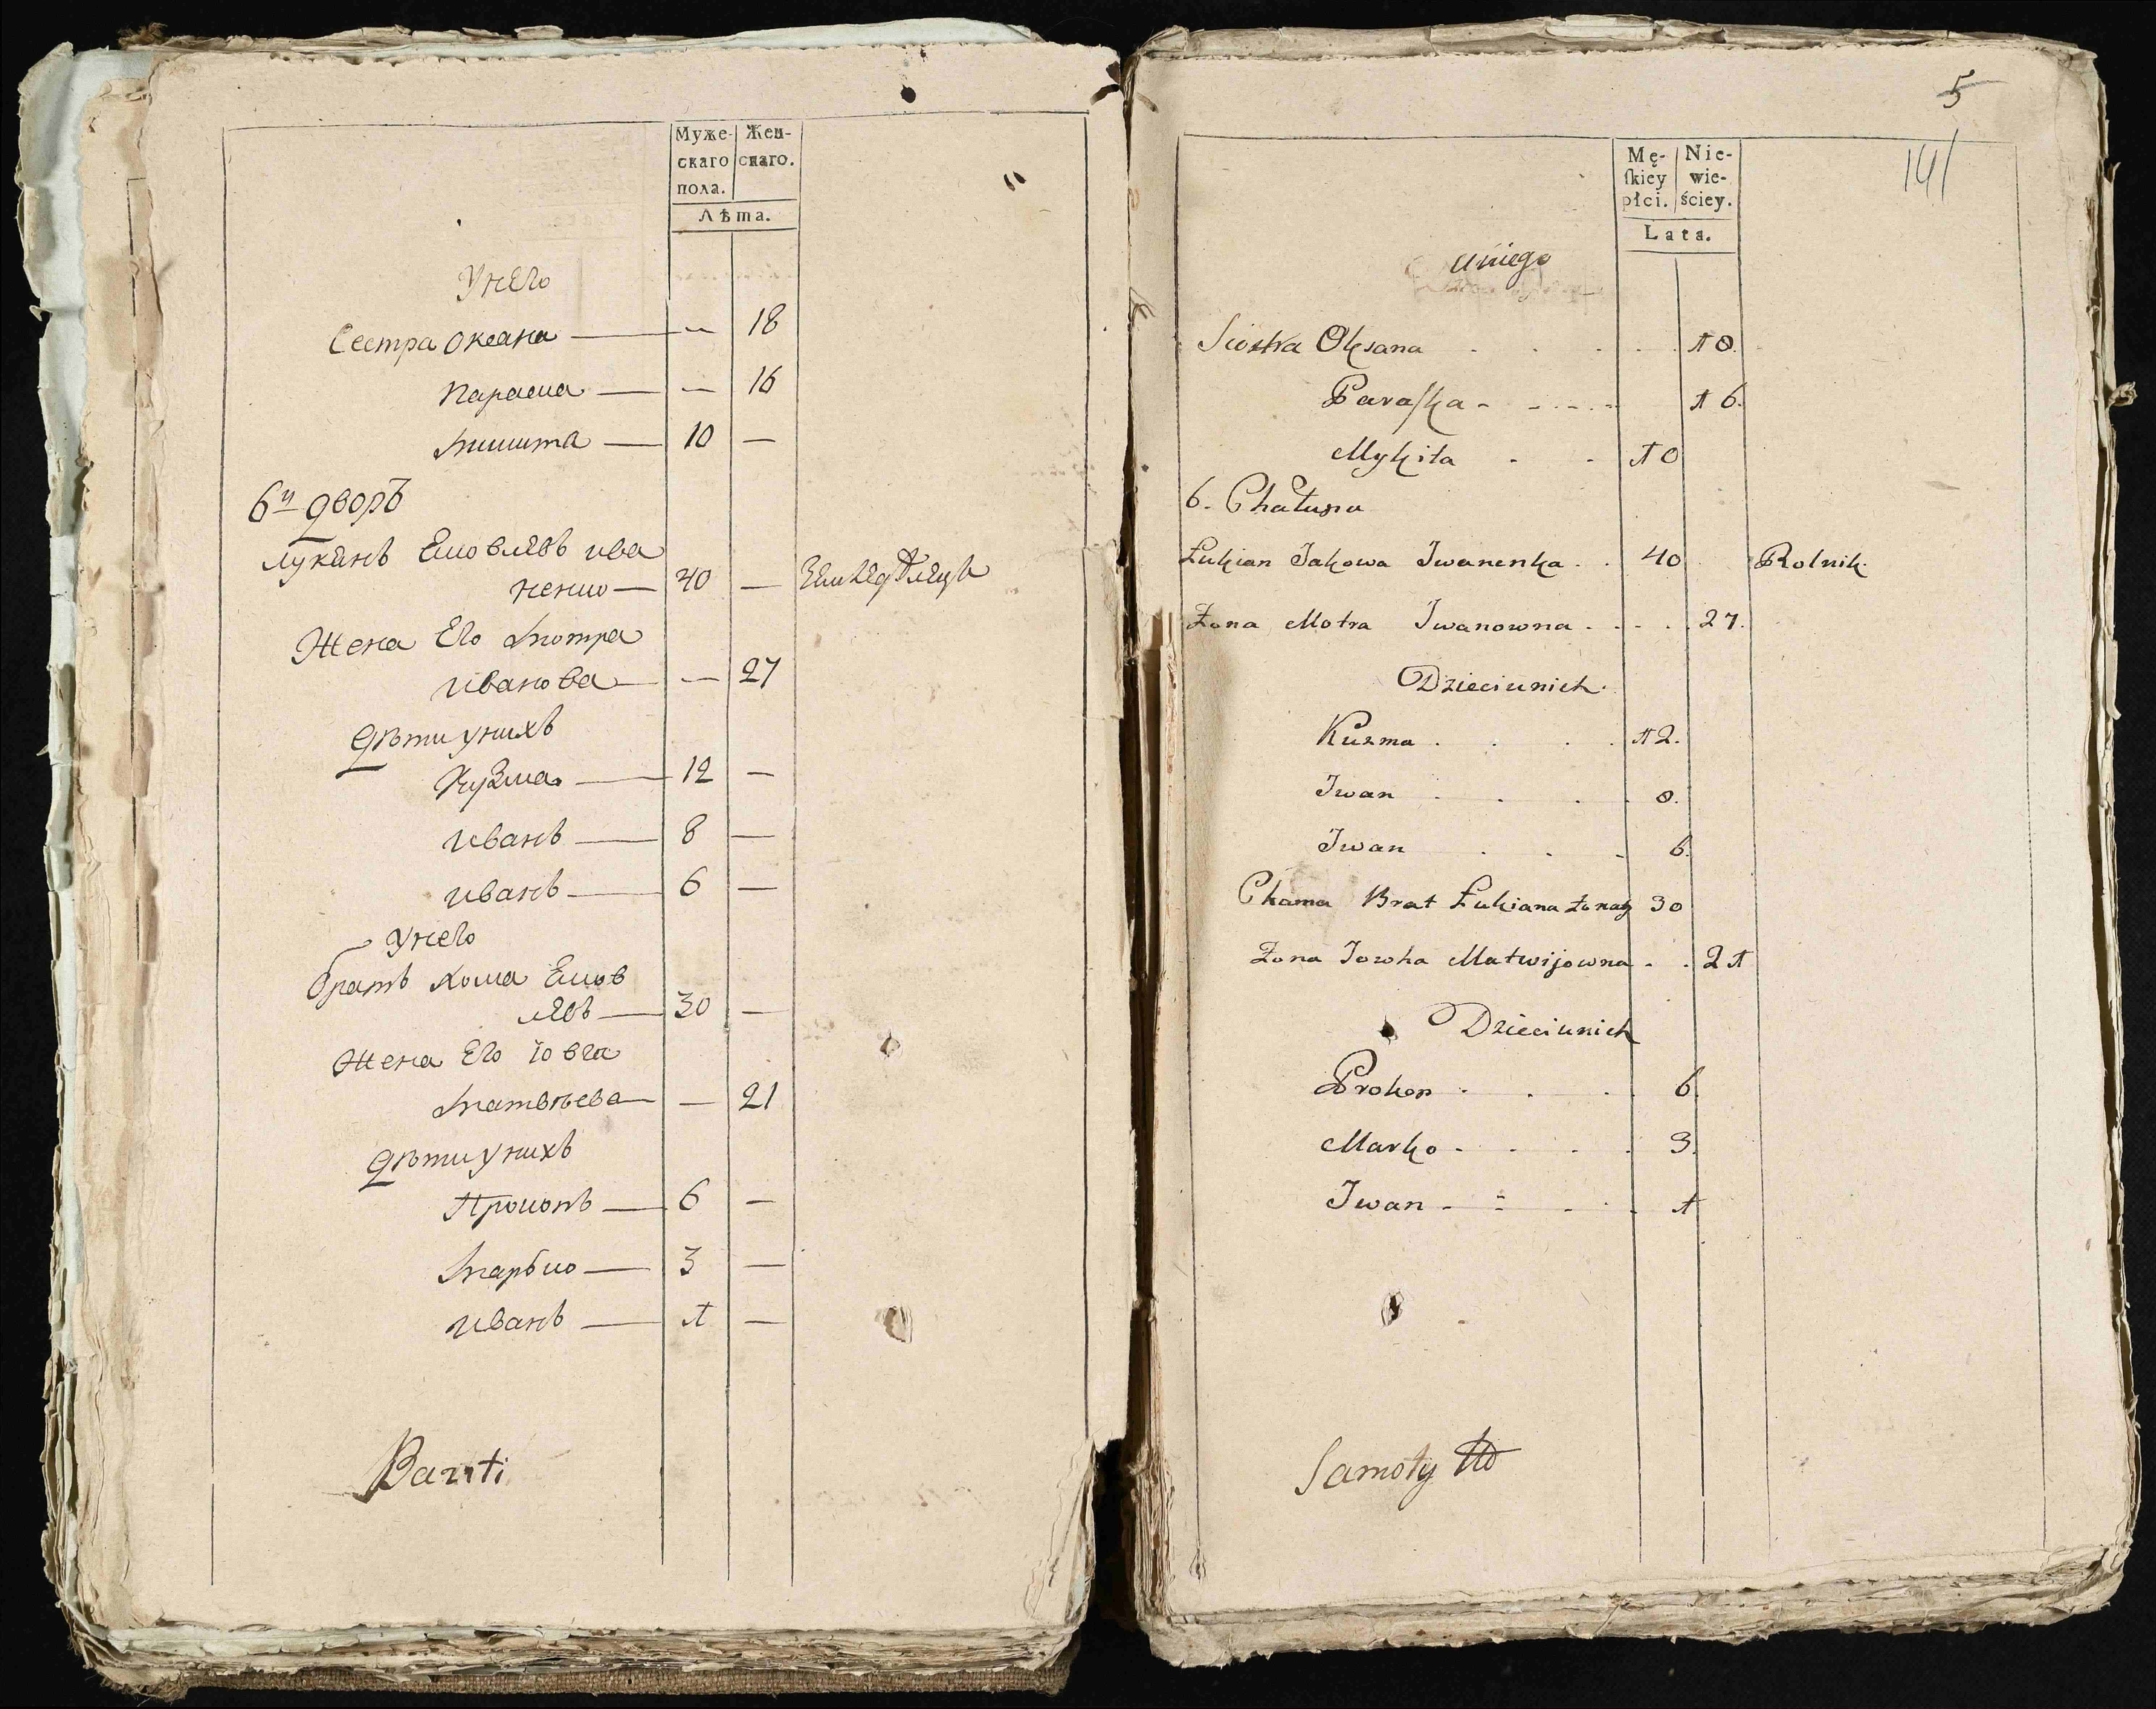 Муже- Жен-
скаго скаго.
пола.
Лѣта.
У него
Сестра оксана — — 18
параска — — 16
микита — 10 —
6й дворъ
лукянъ Яковлевъ ива
ненко — 40 —
Жена Его мотра
иванова — — 27
дѣти у нихъ
Кузма — 12 —
иванъ — 8 —
иванъ — 6 —
У него
братъ хома Яков
левъ — 30 —
жена Его Iовга
матвѣева — — 21
дѣти у нихъ
Прокопъ — 6 —
марько — 3 —
иванъ — 1 —
5
141
Mę- Nie-
ſkiey wie-
płci. ściey.
Lata.
uniego
Siostra Oksana 18.
Paraſka 16.
Mykita 10
6. Chałupa
Łukian Jakowa Iwanenka 40 Rolnik.
Żona Motra Iwanowna 27.
Dzieci unich.
Kuzma 12.
Iwan 8.
Iwan 6.
Choma Brat Łukiana żonaty 30
Żona Jowha Matwijowna 21
Dzieci unich
Prokop 6.
Marko 3.
Iwan 1